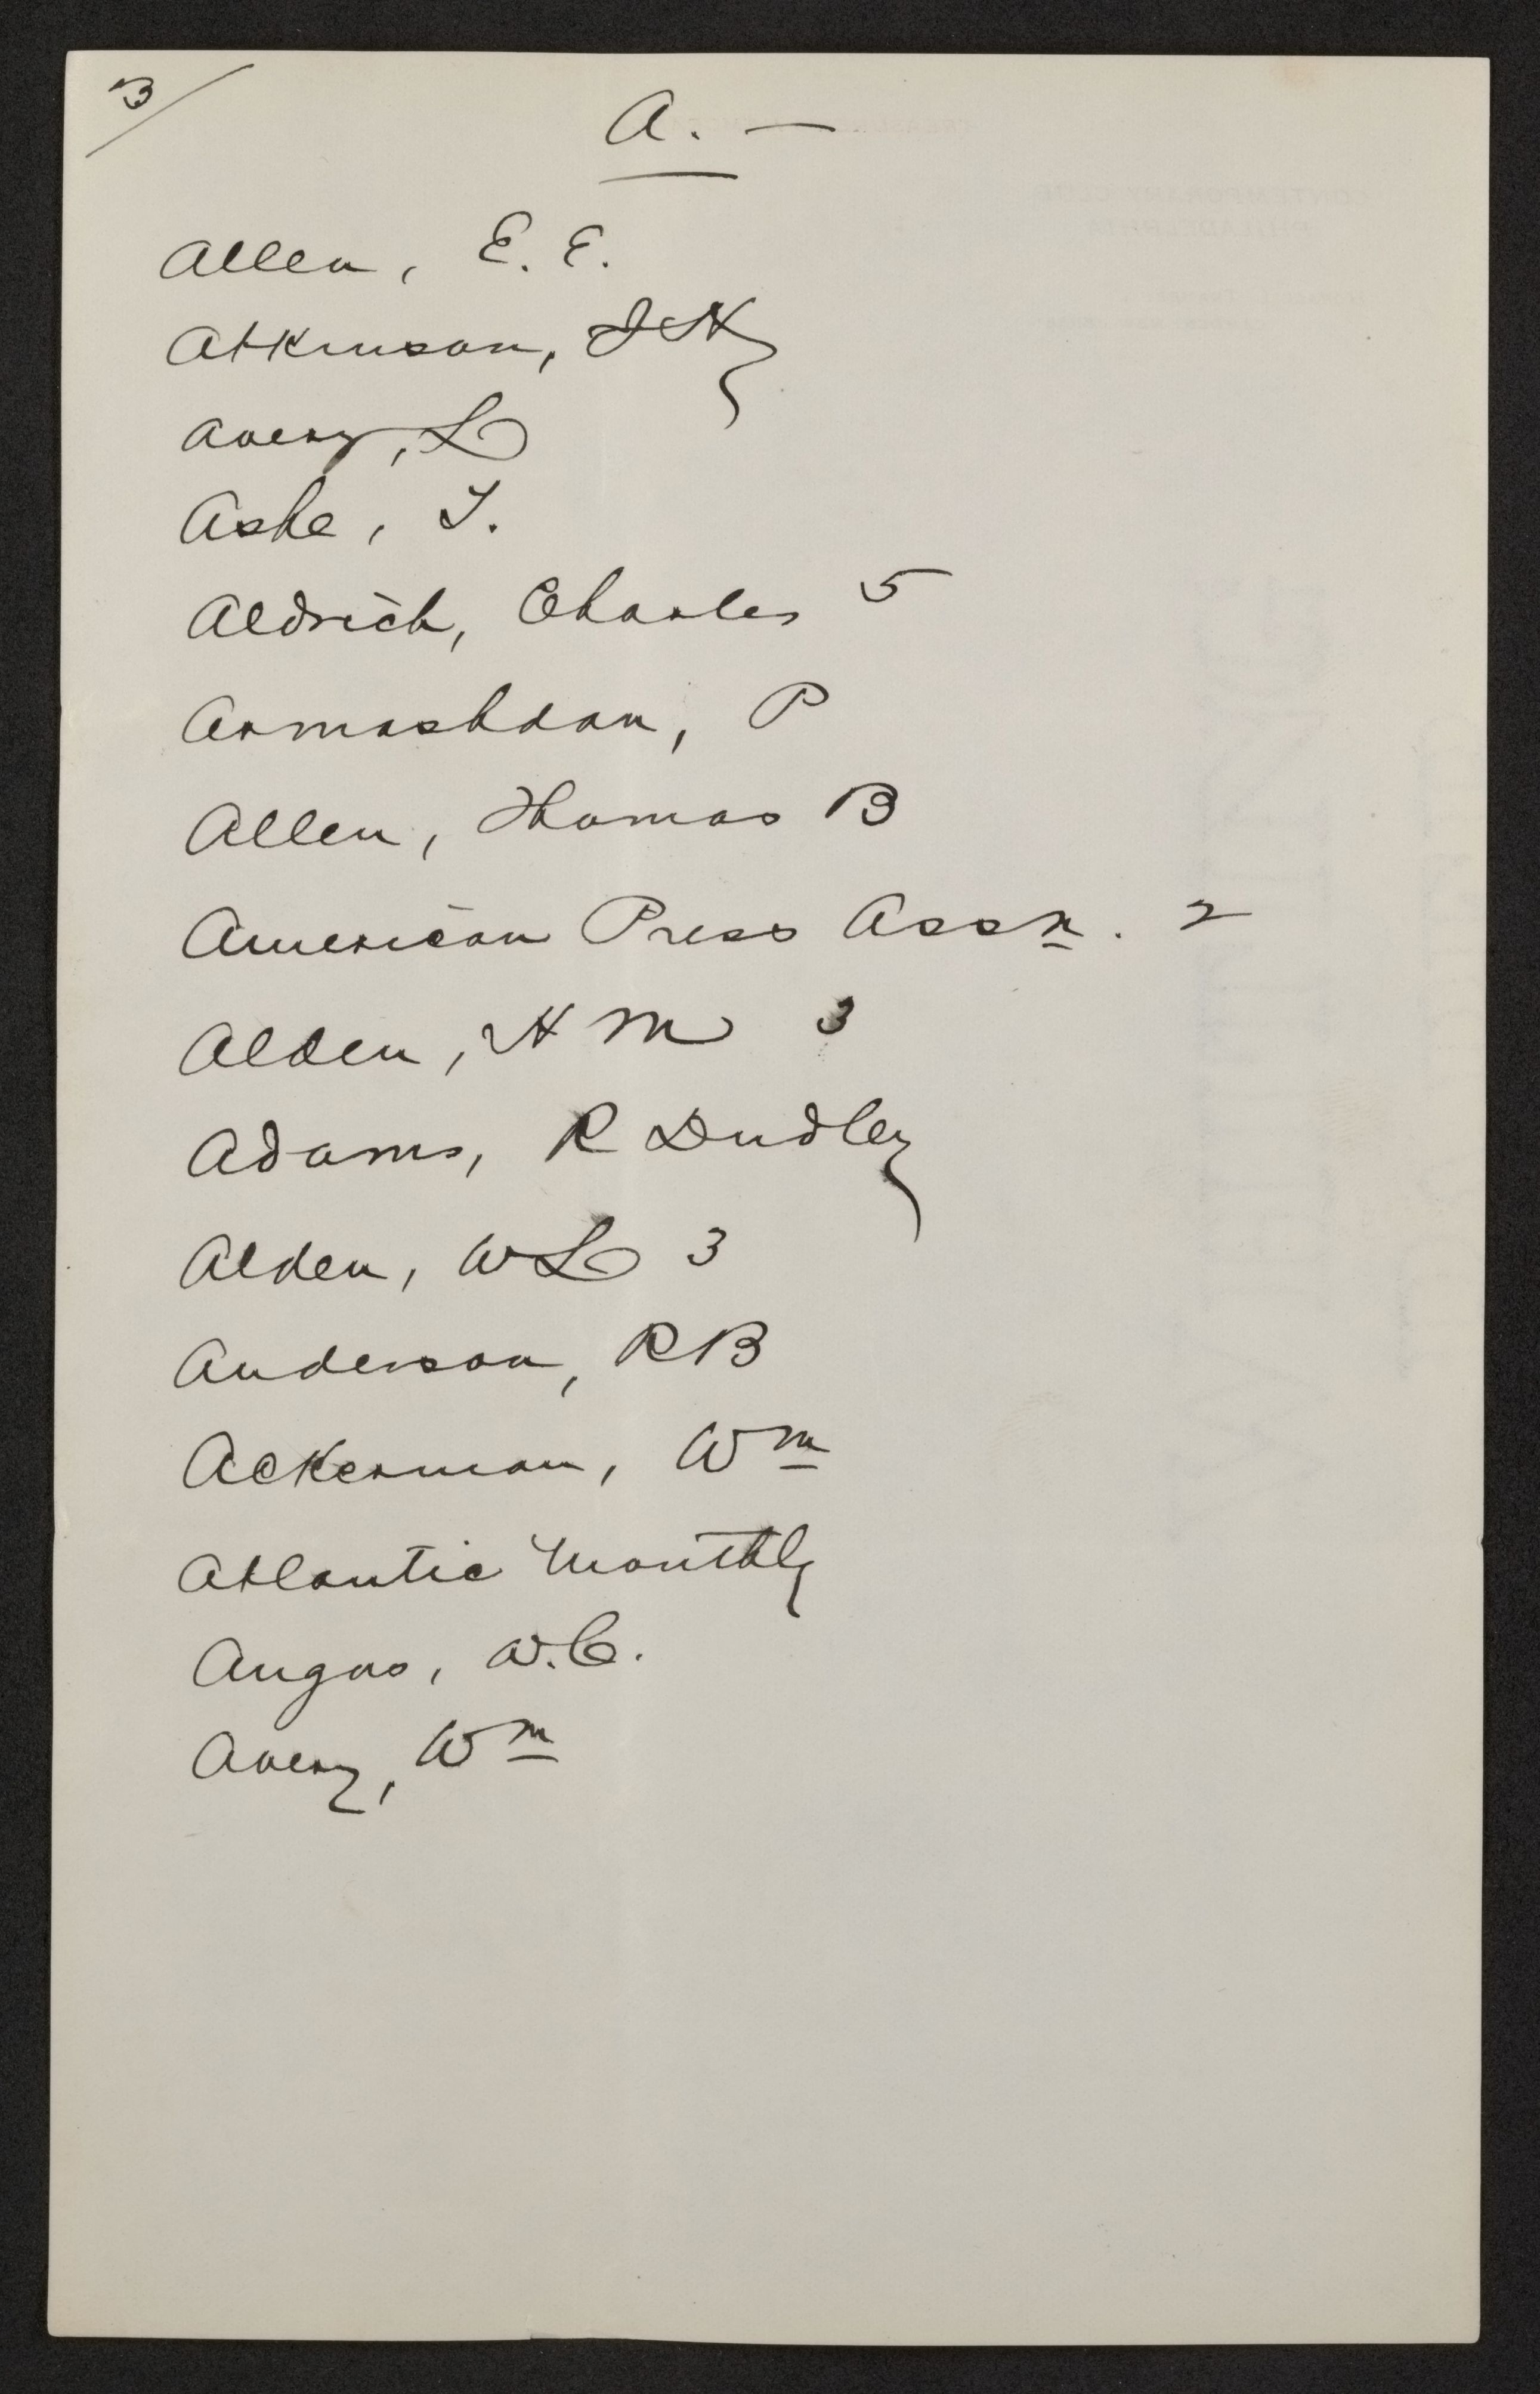 3/
A. —
Allen, E. E.
Atkinson, JH
Avery, L
Ashe, T.
Aldrich, Charles 5
Armashdan, P
Allen, Thomas B
American Press Assn. 2
Alden, H M 3
Adams, R Dudley
Alden, W L 3
Anderson, R B
Ackerman, Wm
Atlantic Monthly
Angus, W. C.
Avery, Wm